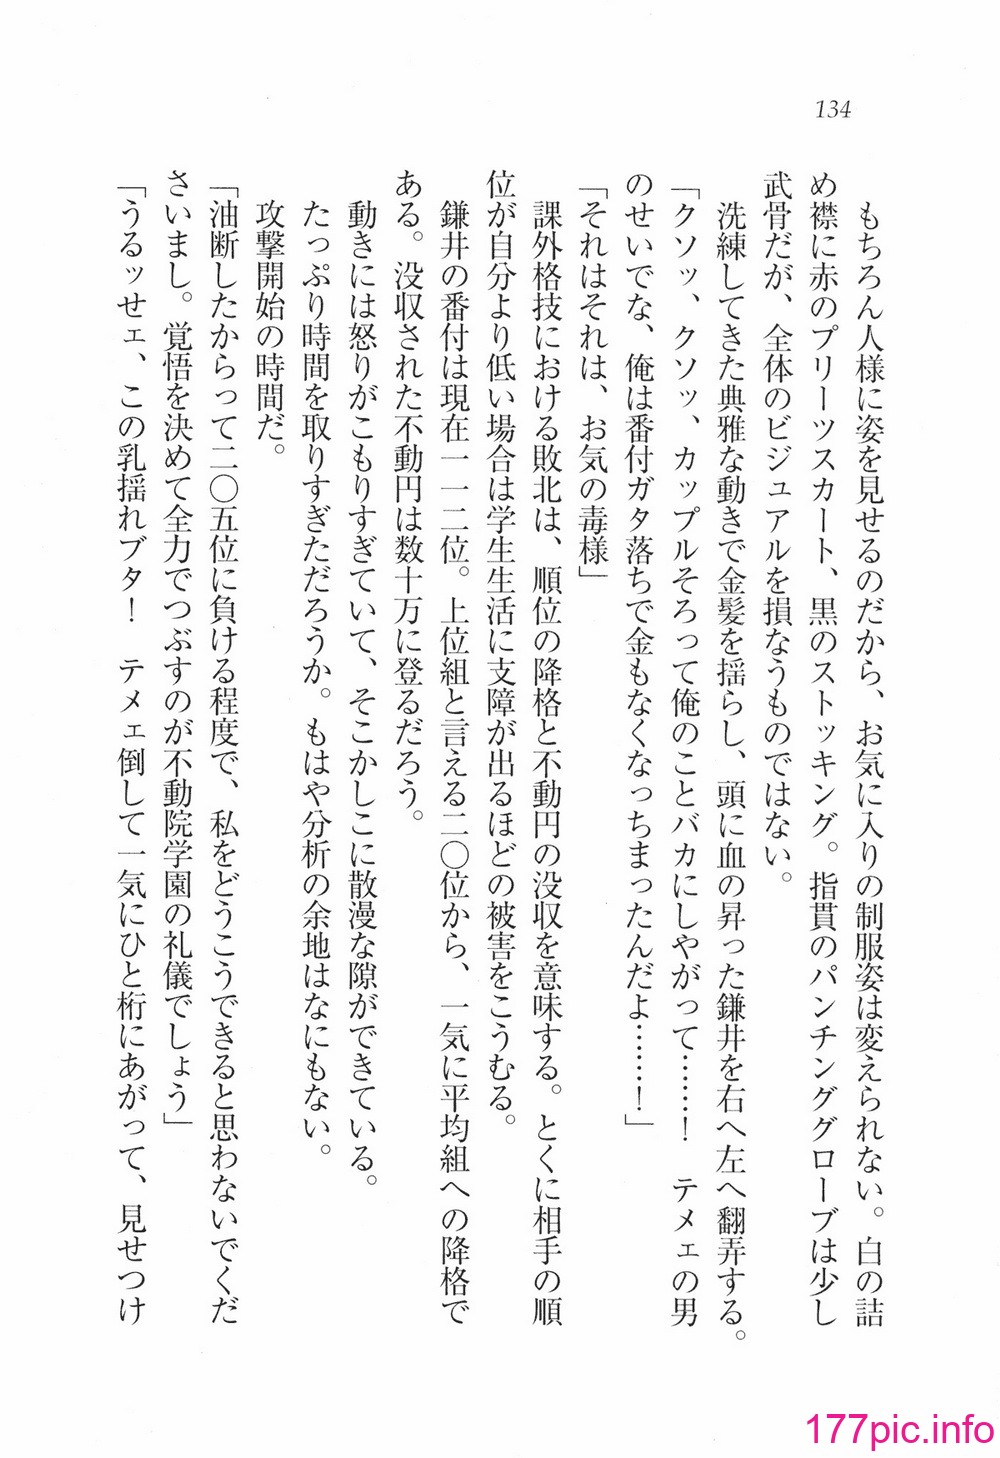 134
もちろん人様に姿を見せるのだから、お気に入りの制服姿は変えられない。白の詰
め襟に赤のプリーツスカート、黒のストッキング。指貫のパンチンググローブは少し
武骨だが、全体のビジュアルを損なうものではない。
洗練してきた典雅な動きで金髪を揺らし、頭に血の昇った鎌井を右へ左へ翻弄する。
「クソッ、クソッ、カップルそろって俺のことバカにしやがって……！　テメェの男
のせいでな、俺は番付ガタ落ちで金もなくなっちまったんだよ……！」
「それはそれは、お気の毒様」
課外格技における敗北は、順位の降格と不動円の没収を意味する。とくに相手の順
位が自分より低い場合は学生生活に支障が出るほどの被害をこうむる。
鎌井の番付は現在一一二位。上位組と言える二〇位から、一気に平均組への降格で
ある。没収された不動円は数十万に登るだろう。
動きには怒りがこもりすぎていて、そこかしこに散漫な隙ができている。
たっぷり時間を取りすぎただろうか。もはや分析の余地はなにもない。
攻撃開始の時間だ。
「油断したからって二〇五位に負ける程度で、私をどうこうできると思わないでくだ
さいまし。覚悟を決めて全力でつぶすのが不動院学園の礼儀でしょう」
「うるッせェ、この乳揺れブタ！　テメェ倒して一気にひと桁にあがって、見せつけ
177pic.info